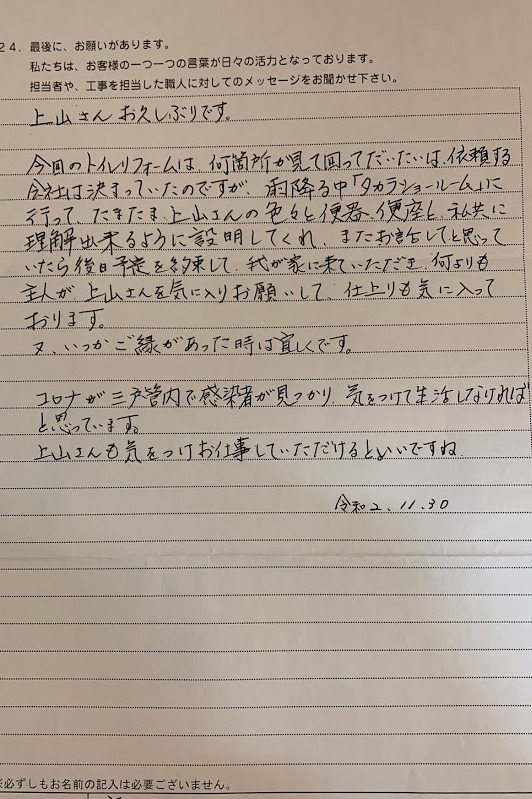 24. 最後に、お願いがあります。
私たちは、お客様の一つ一つの言葉が日々の活力となっております。
担当者や、工事を担当した職人に対してのメッセージをお聞かせ下さい。
上山さん お久しぶりです。
今回のトイレリフォームは、何箇所か見て回ってだいたいは、依頼する
会社は決まっていたのですが、雨降る中「タカラショールーム」に
行って、たまたま上山さんの色々と便器、便座と、私共に
理解出来るように説明してくれ、またお話してと思って
いたら後日予定を約束して、我が家に来ていただき、何よりも
主人が、上山さんを気に入りお願いして、仕上りも気に入って
おります。
又、いつかご縁があった時は宜しくです。
コロナが三戸管内で感染者が見つかり、気をつけて生活しなければ
と思っています。
上山さんも気をつけお仕事していただけるといいですね。
令和2.11.30
※必ずしもお名前の記入は必要ございません。